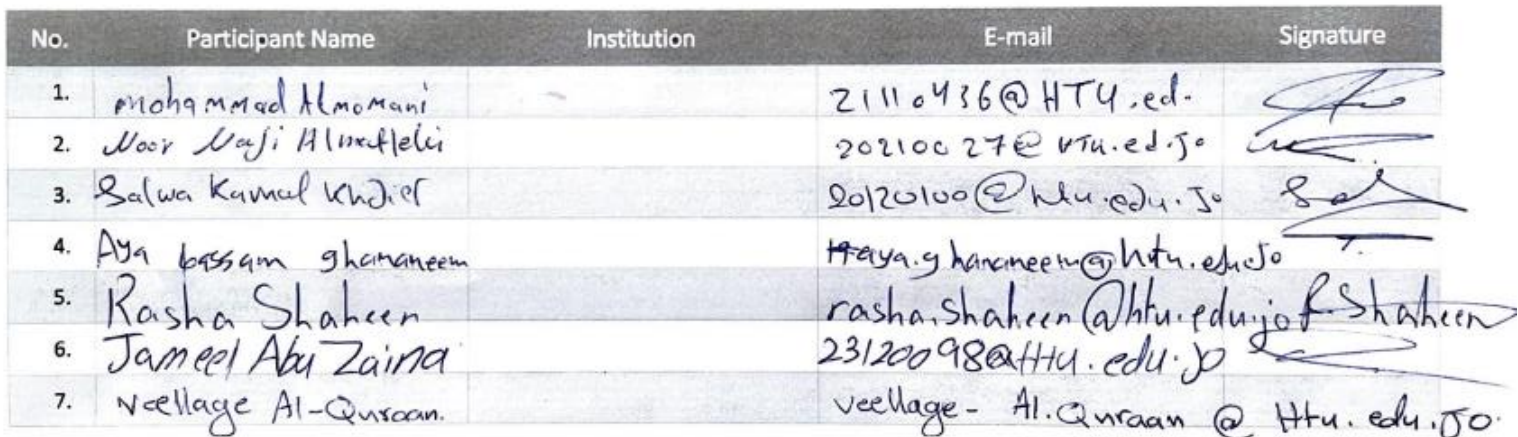 No. Participant Name Institution E-mail Signature
1. Mohammad Almomani 21110436@HTU.ed.
2. Noor Naji 20210027@HTU.ed.Jo
3. Salwa Kamal 20120100@htu.edu.Jo
4. Aya bassam ghananeem aya.ghananeem@htu.edu.Jo
5. Rasha Shaheen rasha.shaheen@htu.edu.jo R.Shaheen
6. Jameel Abu Zaina 23120098@HtU.edu.jo
7. Veellage Al-Quraan. veellage-Al.Quraan@Htu.edu.Jo.